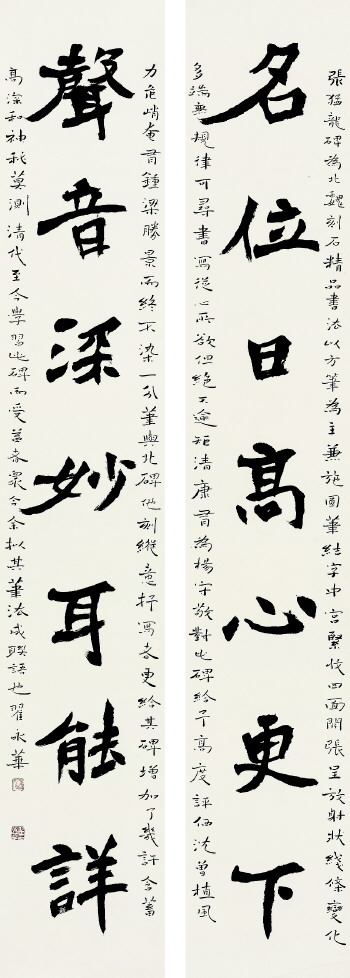 張猛龍碑為北魏刻石精品書法以方筆為主兼施圓筆結字中宮緊收四面開張呈放射狀綫條變化
名位日高心更下
多端無規律可尋書寫從心所欲但絕不逾矩清康有為楊守敬對此碑給予高度評価沈曾植風
力危峭奄有鍾梁勝景而終不染一分筆與北碑他刻縱意抒寫者更給其碑增加了幾許含蓄
聲音深妙耳能詳
高深和神秘莫測清代至今學習此碑而受益者眾今余擬其筆法成聯語也翟永華